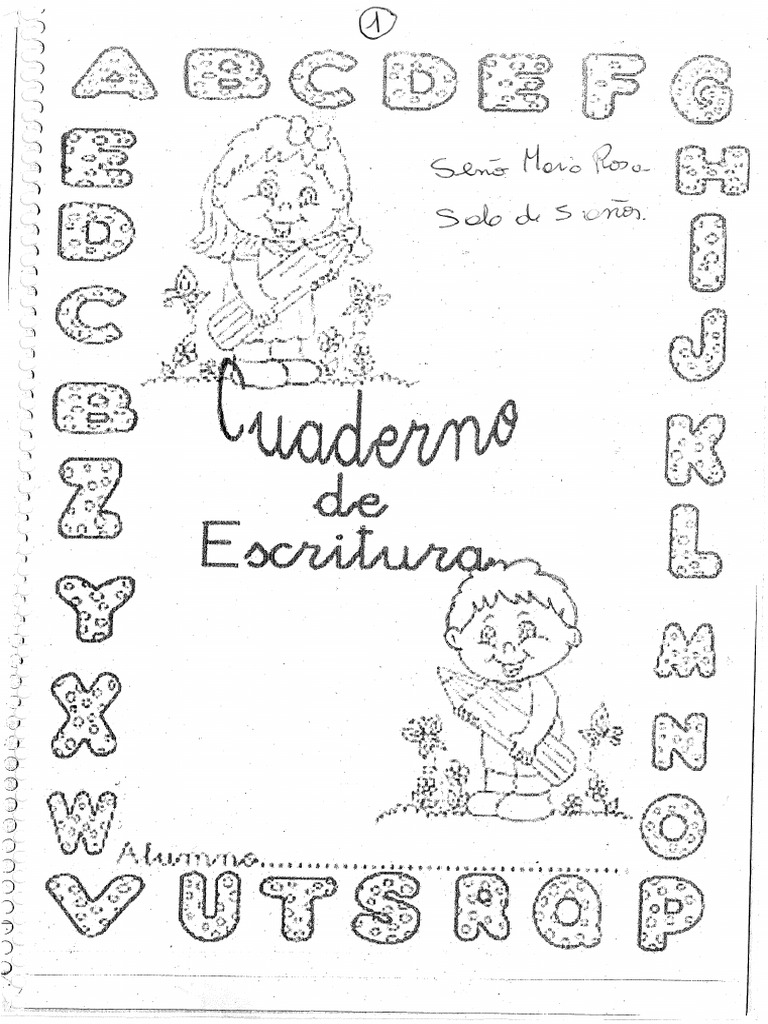 1
A B C D E F G
Seño Maria Rosa
Sala de 5 años.
H I J K L M N O P
Q R S T U V
W X Y Z B C D E
Cuaderno
de
Escritura
Alumno